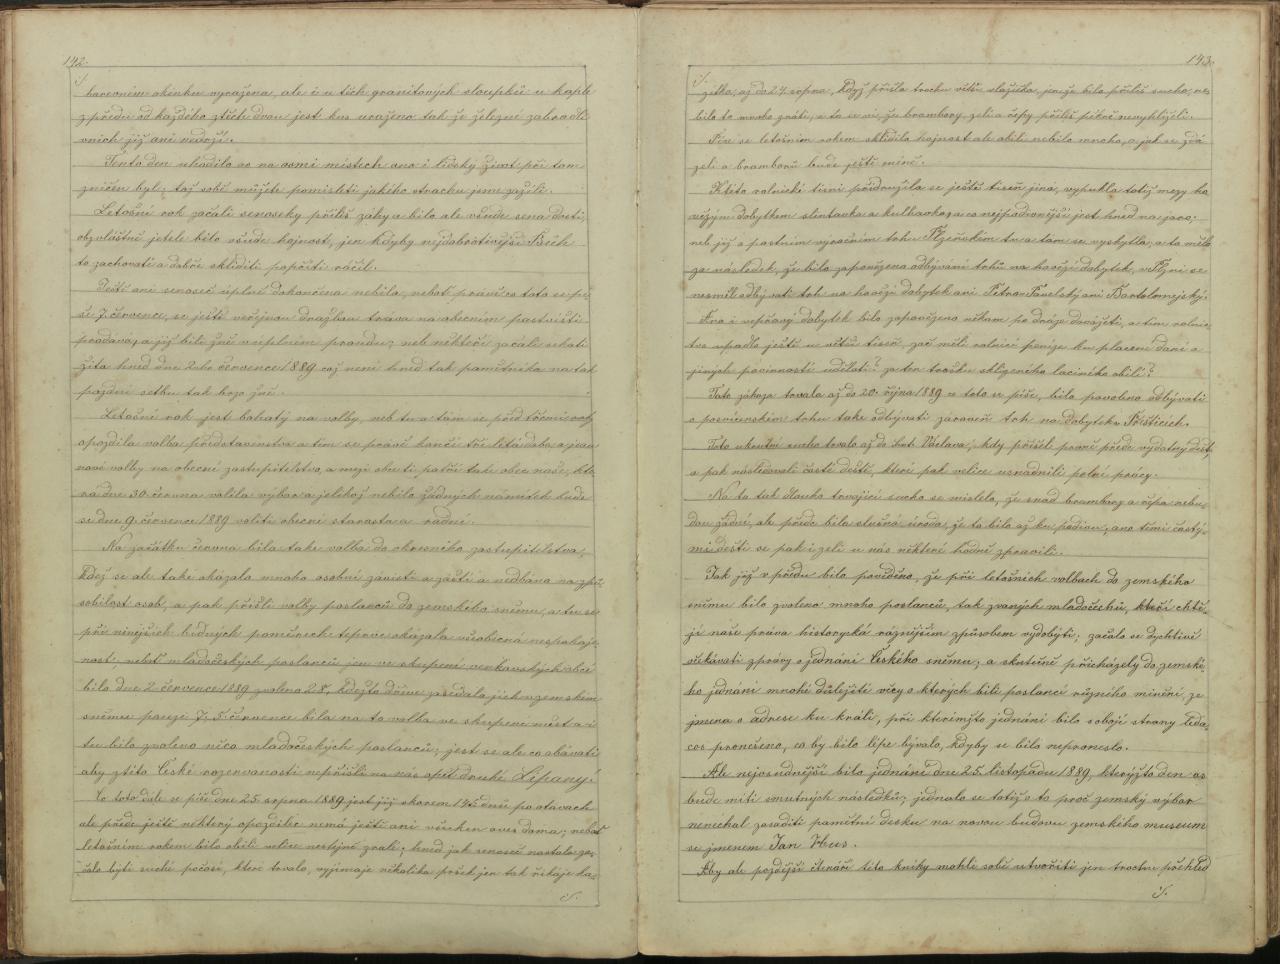 142.
barevném okénku vyražena, ale i u těch granitových sloupků u kaple
zpředu od každého ztěch dvou jest kus uraženo tak že železné zábradlí
vních již ani nedrží.
Tento den uhodilo as na osmi místech ano i lidský život při tom
zničen byl; tož sobě můžete pomisleti jakého strachu jsme zažili.
Letošní rok začali senoseky příliš záhy a bilo ale všude sena dosti,
obzvláštně jetele bilo všude hojnost, jen kdyby nejdobrotivější Bůh
to zachovati a dobře skliditi popříti ráčil.
Ještě ani senoseč úplně dokončena nebila, neboť právě co toto se pí-
še 7. července, se ještě veřejnou dražbou tráva na obecním pastvišti
prodává, a již bili žně v úplném proudu; neb někteří začali sekati
žita hned dne 2ho července 1889 což není hned tak pamětníka na tak
pozdní setbu tak brzo žně.
Letošní rok jest bohatý na volby, neb tu a tám se před třemi roky
opozdila volba představenstva a tím se právě končí tříletá doba, a jsou
nové volby na obecní zastupitelstvo, a mezi obcemi patří také obec naše, kte-
rá dne 30. června volila výbor a jelikož nebilo žádných námitek bude
se dne 9. července 1889 voliti obecní starosta a radní.
Na začátku června bila také volba do okresního zastupitelstva,
kdež se ale také okázalo mnoho osobní závisti a záští a nedbáno na způ-
sobilost osob, a pak přišli volby poslanců do zemského sněmu, a tu se
při ninějších bídných poměrech teprve okázala všeobecná nespokoje-
nost; neboť mladočeských poslanců jen ve skupení venkovských obcí
bilo dne 2. července 1889 zvoleno 28, kdežto dříve zasedalo jich v zemském
sněmu pouze 7; 5. července bila na to volba ve skupení měst a i
tu bilo zvoleno něco mladočeských poslanců; jest se ale co obávati
aby z této České rozervanosti nepřišli na nás opět druhé Lipany.
Co toto dále se píše dne 25. srpna 1889 jest již skorem 14 dnů po otavách
ale přede ještě některý opozdilec nemá ještě ani všecken oves doma; neboť
letošním rokem bilo obilí velice nestejně zralé; hned jak senoseč nastala za-
čalo býti suché počasí, které trvalo, vyjímaje několika pršek jen tak říkaje ka-
143.
pitko, až do 24. srpna, kdyz přišla trochu větší vlažička, jenže bilo příliš sucho, ne-
bilo to mnoho znáti, a to se ví, že brambory, zelí a řepy příliš pěkně nevyhlíželi.
Píce se letošním rokem sklidilo hojnost ale obilí nebilo mnoho, a jak se zdá
zelí a bramborů bude ještě méně.
K této rolnické tísni přidružila se ještě tíseň jiná, vypukla totiž mezy ho-
vězým dobytkem slintavka a kulhavka, a co nejpodivnější jest hned na jaro;
neb již o postním výročním trhu Plzeňském tu a tám se vyskytla, a to mělo
za následek, že bila zapovězena odbývání trhů na hovězí dobytek, v Plzni se
nesměl odbývati trh na hovězí dobytek ani Petro-Pavelský ani Bartolomějský.
Ano i vepřový dobytek bilo zapovězeno někam po dráze dovážeti, a tím rolnic-
tvo upadlo ještě u větší tíseň, zač měli rolníci peníze ku placení daní a
jiných povinností udělati? za ten trošku sklizeného laciného obilí?
Tato zákaza trvala až do 20. října 1889 co toto se píše, bilo povoleno odbývati
o posvícenském trhu také odbývati zároveň trh na dobytek v Přešticích.
Toto ukrutné sucho trvalo až do Svat. Václava, kdy přišel pravě přede vydatný dešt,
a pak následovali časté deště, které pak velice usnadnili polní prácy.
Na to tak dlouho trvající sucho se mislelo, že snad brambory a řepa nebu-
dou žádné, ale přede bila slušná úroda, že to bilo až ku podivu, ano těmi častý-
mi dešti se pak i zelí u nás některé hodně zpravili.
Jak již v předu bilo povědíno, že při letošních volbách do zemského
sněmu bilo zvoleno mnoho poslanců, tak zvaných mladočechů, kteří chtě-
jí naše práva historycká ráznějším způsobem vydobýti; začalo se dychtivě
očekávati zprávy o jednání Českého sněmu; a skutečně přicházely do zemské-
ho jednání mnohé důležité věcy o kterých bili poslanci různého mínění, ze-
jmena o adrese ku králi, při kterémžto jednání bilo s obojí strany leda-
cos proneseno, co by bilo lépe bývalo, kdyby se bilo neproneslo.
Ale nejosudnější bilo jednání dne 25. listopadu 1889, kterýžto den as
bude míti smutných následků; jednalo se totiž o to proč zemský výbor
nenechal zasaditi pamětní desku na novou budovu zemského museum
se jmenem Jan Hus.
Aby ale pozdější čtenáři této knihy mohli sobě utvořiti jen trochu přehled